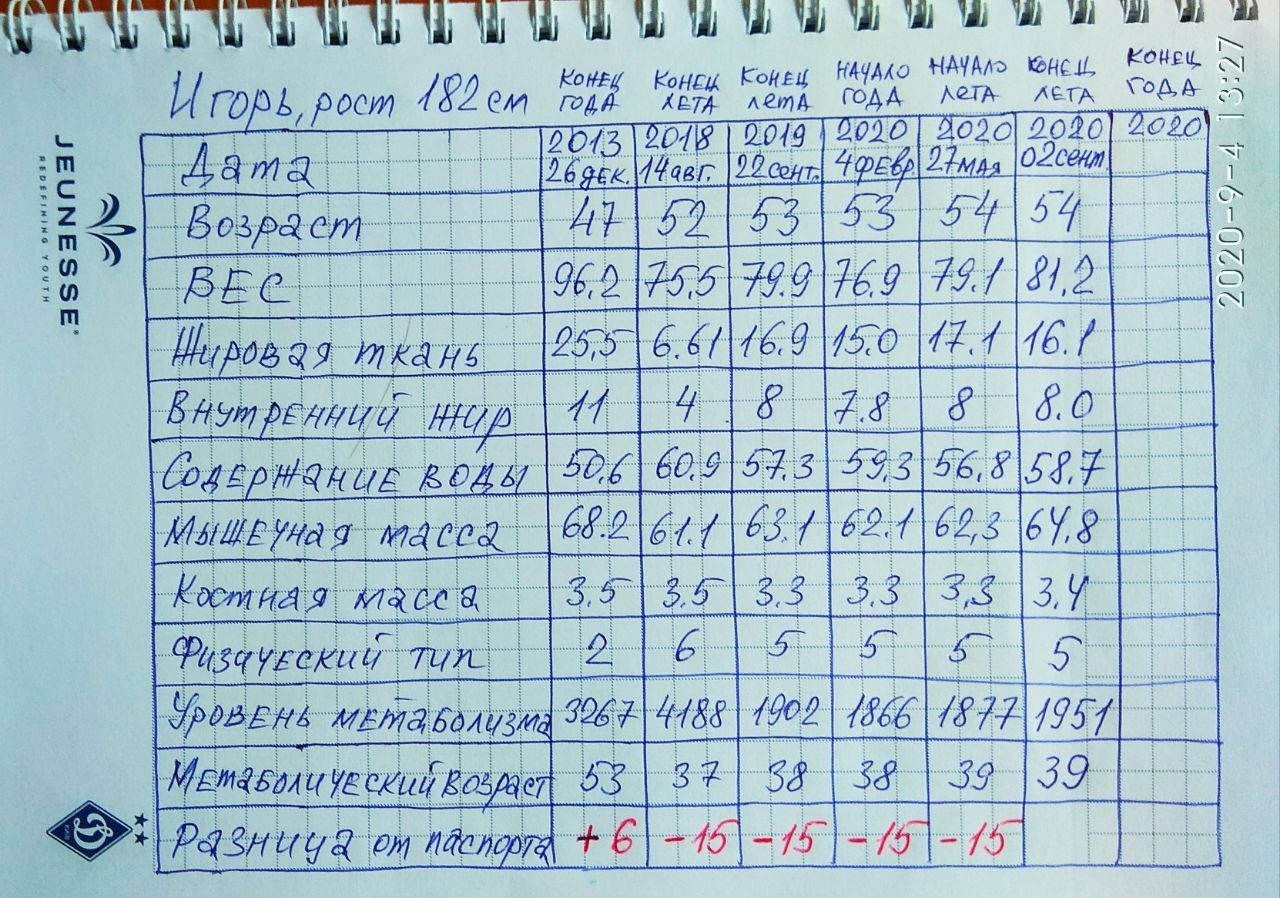 Игорь, рост 182 см
КОНЕЦ ГОДА КОНЕЦ ЛЕТА КОНЕЦ ЛЕТА НАЧАЛО ГОДА НАЧАЛО ЛЕТА КОНЕЦ ЛЕТА КОНЕЦ ГОДА
Дата 2013 26 дек. 2018 14 авг. 2019 22 сент. 2020 4 февр. 2020 27 мая 2020 02 сент. 2020
Возраст 47 52 53 53 54 54
ВЕС 96.2 75,5 79.9 76.9 79.1 81,2
Жировая ткань 25,5 6.61 16.9 15.0 17.1 16.1
Внутренний жир 11 4 8 7.8 8 8.0
Содержание воды 50,6 60.9 57.3 59,3 56,8 58.7
Мышечная масса 68.2 61.1 63.1 62.1 62,3 64,8
Костная масса 3.5 3.5 3.3 3.3 3,3 3.4
Физический тип 2 6 5 5 5 5
Уровень метаболизма 3267 4188 1902 1866 1877 1951
Метаболический возраст 53 37 38 38 39 39
Разница от паспорта +6 -15 -15 -15 -15
JEUNESSE
REDEFINING YOUTH
2020-9-4 13:27